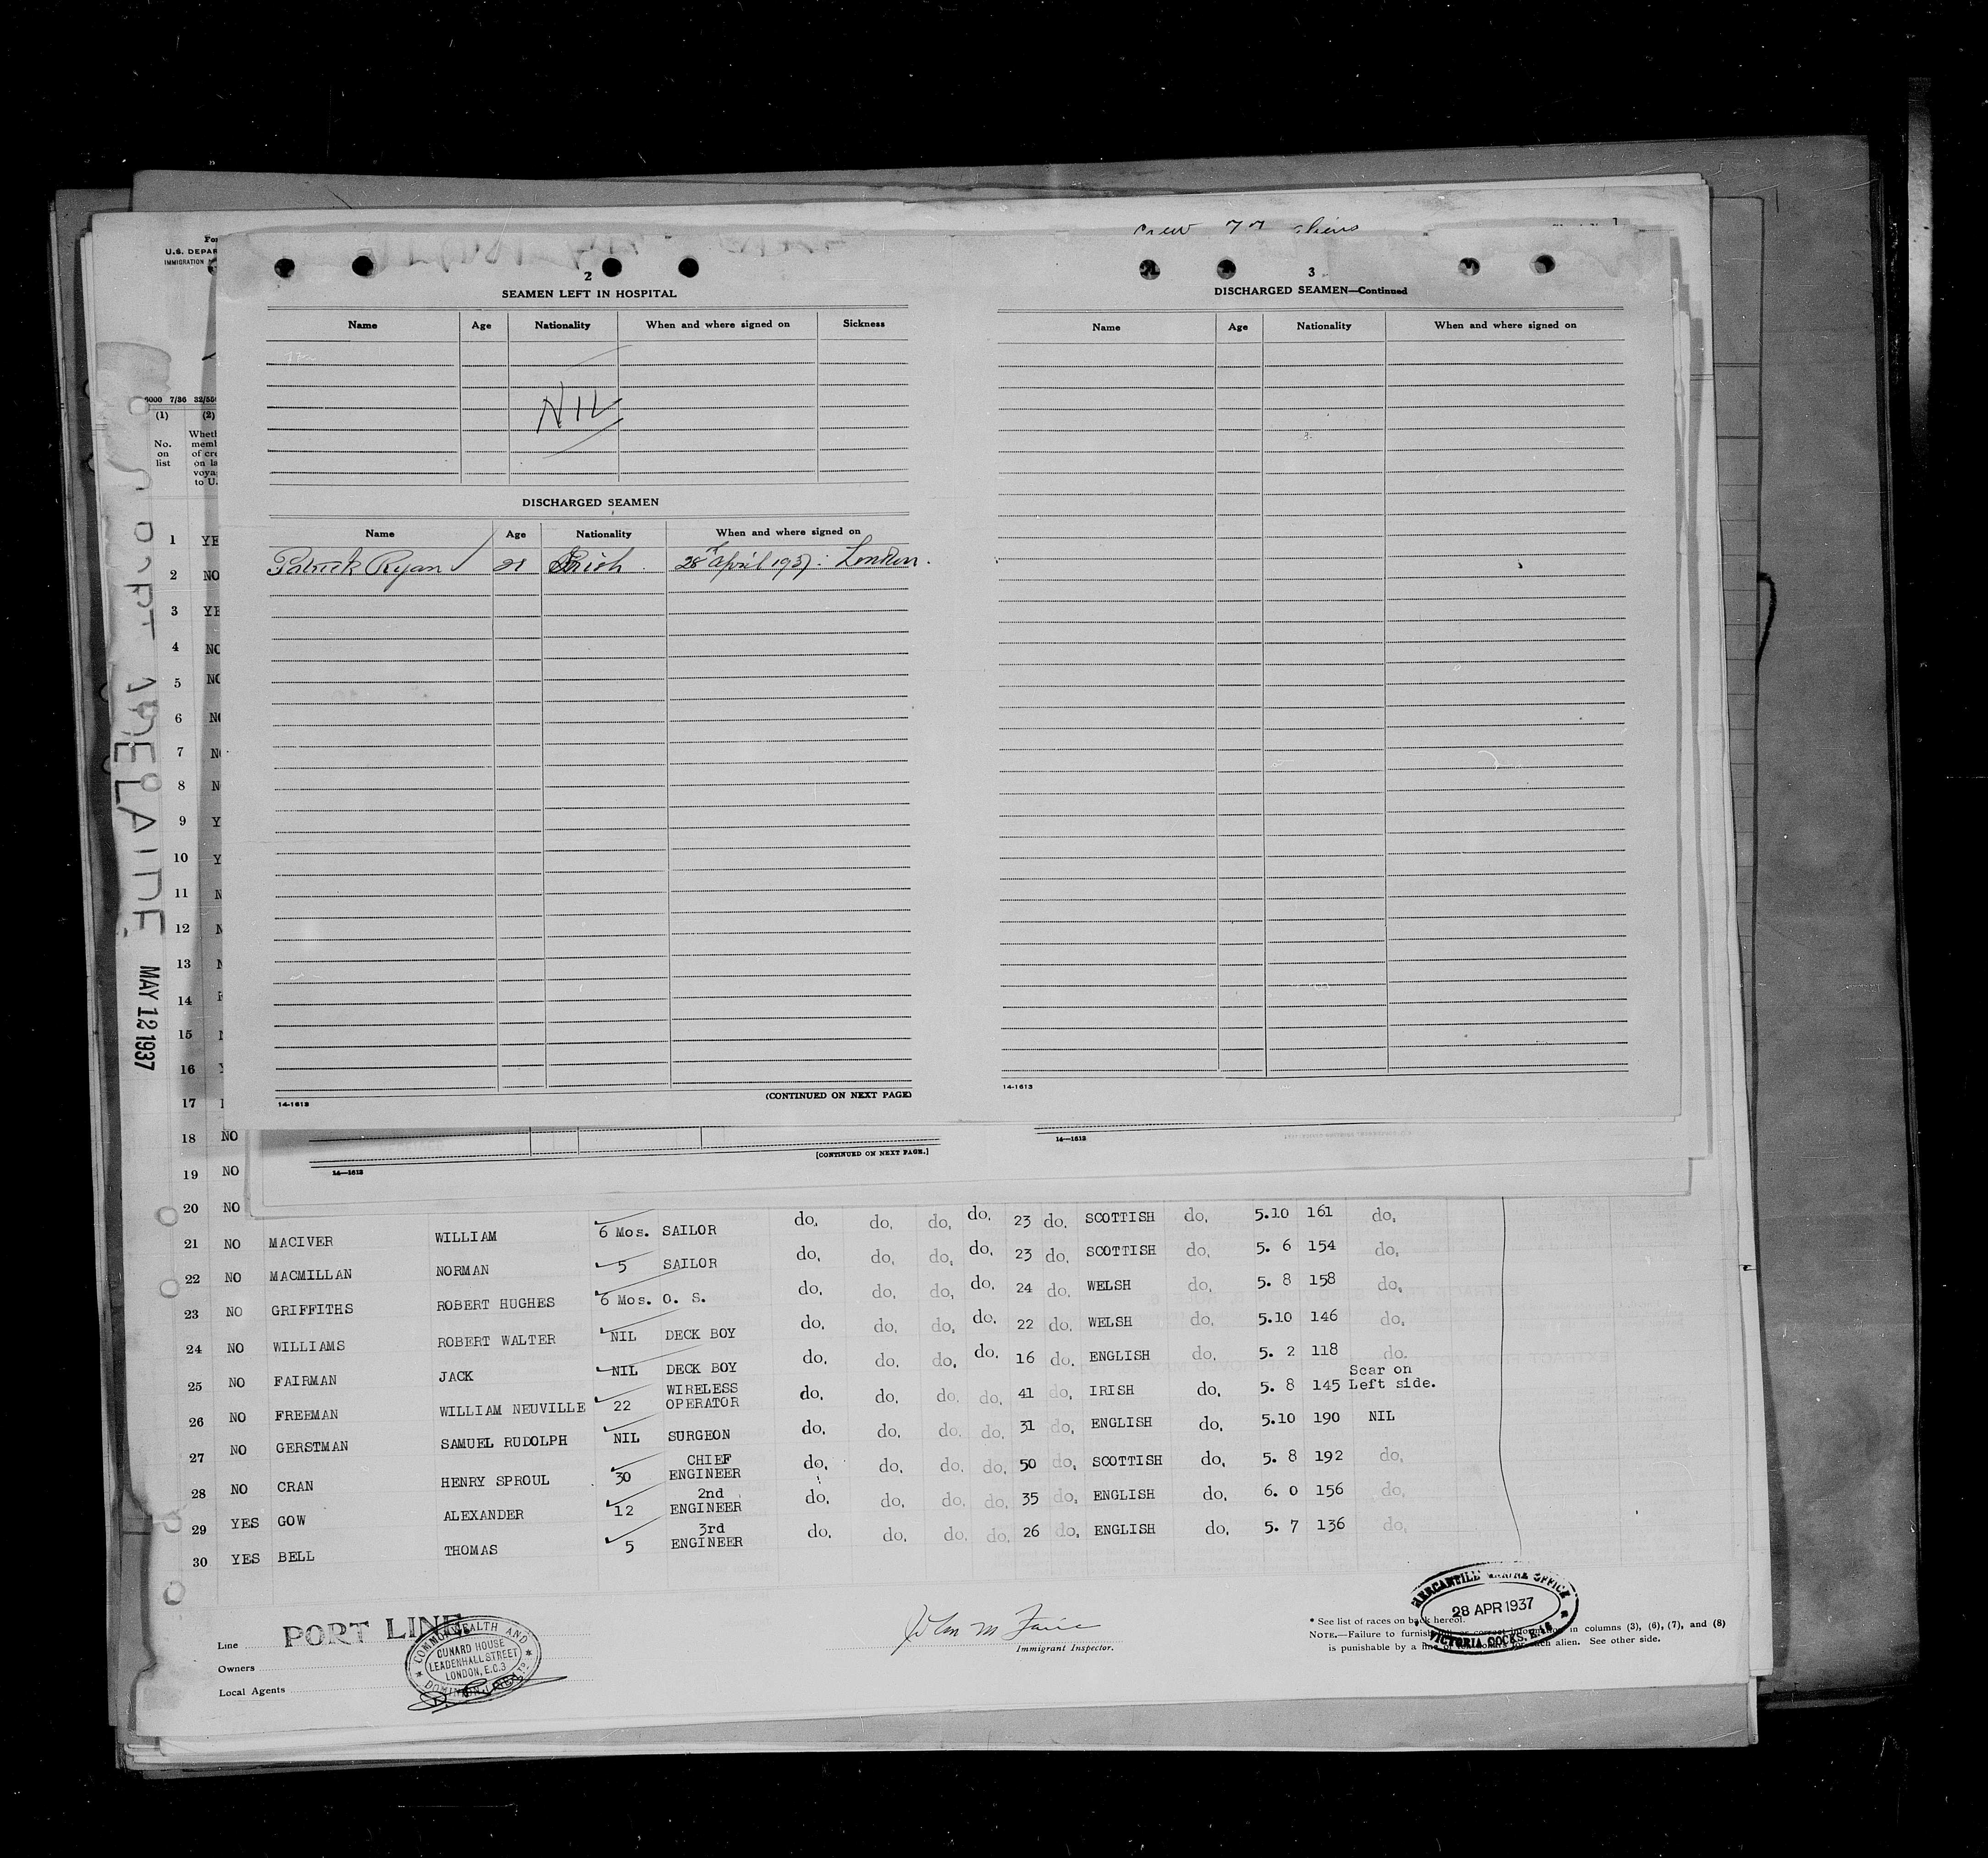 crew 77 aliens
For
U.S. DEPAR
IMMIGRATION
2
SEAMEN LEFT IN HOSPITAL
Name Age Nationality When and where signed on Sickness
NIL
DISCHARGED SEAMEN
Name Age Nationality When and where signed on
Patrick Ryan 28 April 1937: London.
(CONTINUED ON NEXT PAGE)
14-1613
3
DISCHARGED SEAMEN—Continued
Name Age Nationality When and where signed on
14-1613
[CONTINUED ON NEXT PAGE.]
14—1613
14—1613
6000 7/36 32/556
(1) (2)
No. on list
Wheth
memb
of cre
on la
voya
to U.
PORT ADELAIDE
MAY 12 1937
1 YE
2 NO
3 YE
4 NO
5 NO
6 NO
7 N
8 N
9 Y
10 Y
11 N
12 N
13 N
14
15
16
17
18 NO
19 NO
20 NO
21 NO MACIVER WILLIAM 6 Mos. SAILOR do. do. do. do. 23 do. SCOTTISH do. 5.10 161 do.
22 NO MACMILLAN NORMAN 5 SAILOR do. do. do. do. 23 do. SCOTTISH do. 5. 6 154 do.
23 NO GRIFFITHS ROBERT HUGHES 6 Mos. O. S. do. do. do. do. 24 do. WELSH do. 5. 8 158 do.
24 NO WILLIAMS ROBERT WALTER NIL DECK BOY do. do. do. do. 22 do. WELSH do. 5.10 146 do.
25 NO FAIRMAN JACK NIL DECK BOY do. do. do. do. 16 do. ENGLISH do. 5. 2 118 do.
26 NO FREEMAN WILLIAM NEUVILLE 22 WIRELESS OPERATOR do. do. do. do. 41 do. IRISH do. 5. 8 145 Scar on Left side.
27 NO GERSTMAN SAMUEL RUDOLPH NIL SURGEON do. do. do. do. 31 do. ENGLISH do. 5.10 190 NIL
28 NO CRAN HENRY SPROUL 30 CHIEF ENGINEER do. do. do. do. 50 do. SCOTTISH do. 5. 8 192 do.
29 YES GOW ALEXANDER 12 2nd ENGINEER do. do. do. do. 35 do. ENGLISH do. 6. 0 156 do.
30 YES BELL THOMAS 5 3rd ENGINEER do. do. do. do. 26 do. ENGLISH do. 5. 7 136 do.
Line PORT LINE
Owners
Local Agents
COMMONWEALTH AND
CUNARD HOUSE
LEADENHALL STREET
LONDON, E.C.3
DOMINION LINE LTD
John M
Immigrant Inspector.
* See list of races on back hereof.
NOTE.—Failure to furnish in columns (3), (6), (7), and (8)
is punishable by a alien. See other side.
MERCANTILE MARINE OFFICE
28 APR 1937
VICTORIA DOCKS. E.16